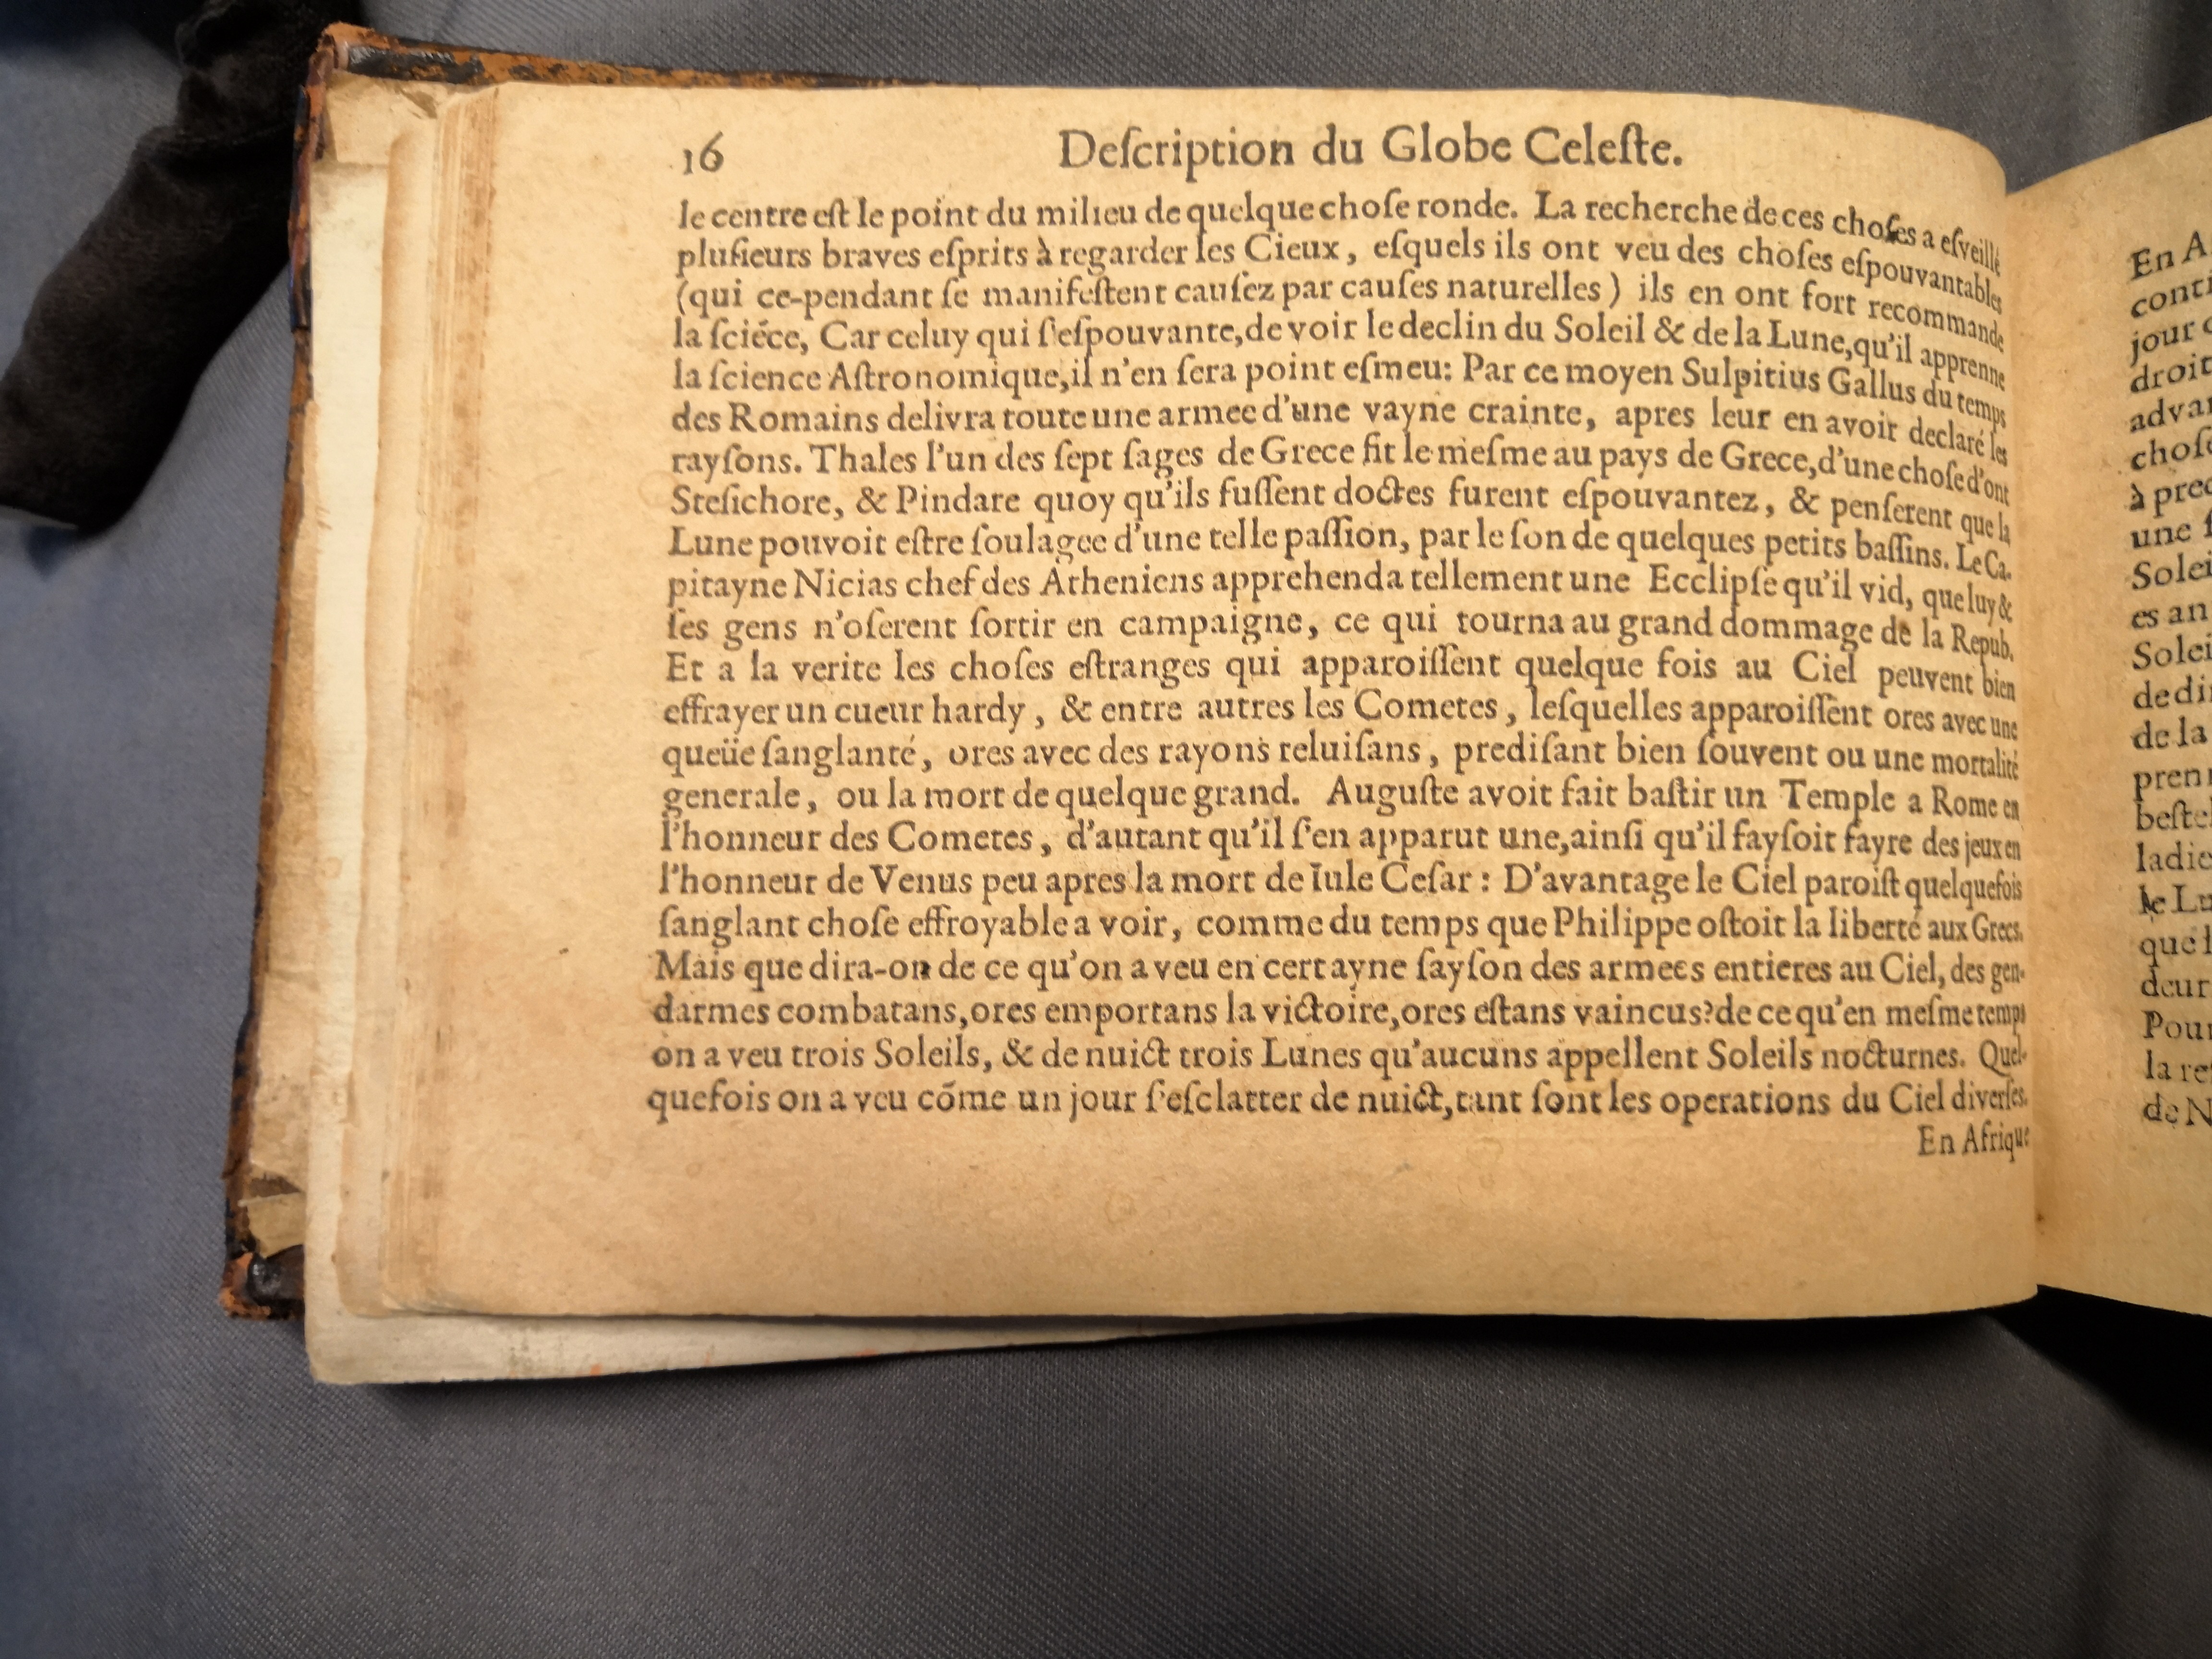 16 Deſcription du Globe Celeſte.
le centre eſt le point du milieu de quelque choſe ronde. La recherche de ces choſes a eſveillé
pluſieurs braves eſprits à regarder les Cieux, eſquels ils ont veu des choſes eſpouvantables
(qui ce-pendant ſe manifeſtent cauſez par cauſes naturelles) ils en ont fort recommande
la ſciéce, Car celuy qui ſ'eſpouvante, de voir le declin du Soleil & de la Lune, qu'il apprenne
la ſcience Aſtronomique, il n'en ſera point eſmeu: Par ce moyen Sulpitius Gallus du temps
des Romains delivra toute une armee d'une vayne crainte, apres leur en avoir declaré les
rayſons. Thales l'un des ſept ſages de Grece fit le meſme au pays de Grece, d'une choſe d'ont
Steſichore, & Pindare quoy qu'ils fuſſent doctes furent eſpouvantez, & penſerent que la
Lune pouvoit eſtre ſoulagee d'une telle paſſion, par le ſon de quelques petits baſſins. Le Ca-
pitayne Nicias chef des Atheniens apprehenda tellement une Ecclipſe qu'il vid, que luy &
ſes gens n'oſerent ſortir en campaigne, ce qui tourna au grand dommage de la Repub.
Et a la verite les choſes eſtranges qui apparoiſſent quelque fois au Ciel peuvent bien
effrayer un cueur hardy, & entre autres les Cometes, leſquelles apparoiſſent ores avec une
queüe ſanglanté, ores avec des rayons reluiſans, prediſant bien ſouvent ou une mortalité
generale, ou la mort de quelque grand. Auguſte avoit fait baſtir un Temple a Rome en
l'honneur des Cometes, d'autant qu'il ſ'en apparut une, ainſi qu'il fayſoit fayre des jeux en
l'honneur de Venus peu apres la mort de Iule Ceſar: D'avantage le Ciel paroiſt quelquefois
ſanglant choſe effroyable a voir, comme du temps que Philippe oſtoit la liberté aux Grecs.
Mais que dira-on de ce qu'on a veu en certayne ſayſon des armees entieres au Ciel, des gen-
darmes combatans, ores emportans la victoire, ores eſtans vaincus? de ce qu'en meſme temps
on a veu trois Soleils, & de nuict trois Lunes qu'aucuns appellent Soleils nocturnes. Quel-
quefois on a veu cõme un jour ſ'eſclatter de nuict, tant ſont les operations du Ciel diverſes.
En Afrique
En A
conti
jour
droit
advan
choſe
à pre
une
Solei
es an
Solei
de di
de la
pren
beſte
ladie
le Lu
que l
deur
Pour
la re
de N